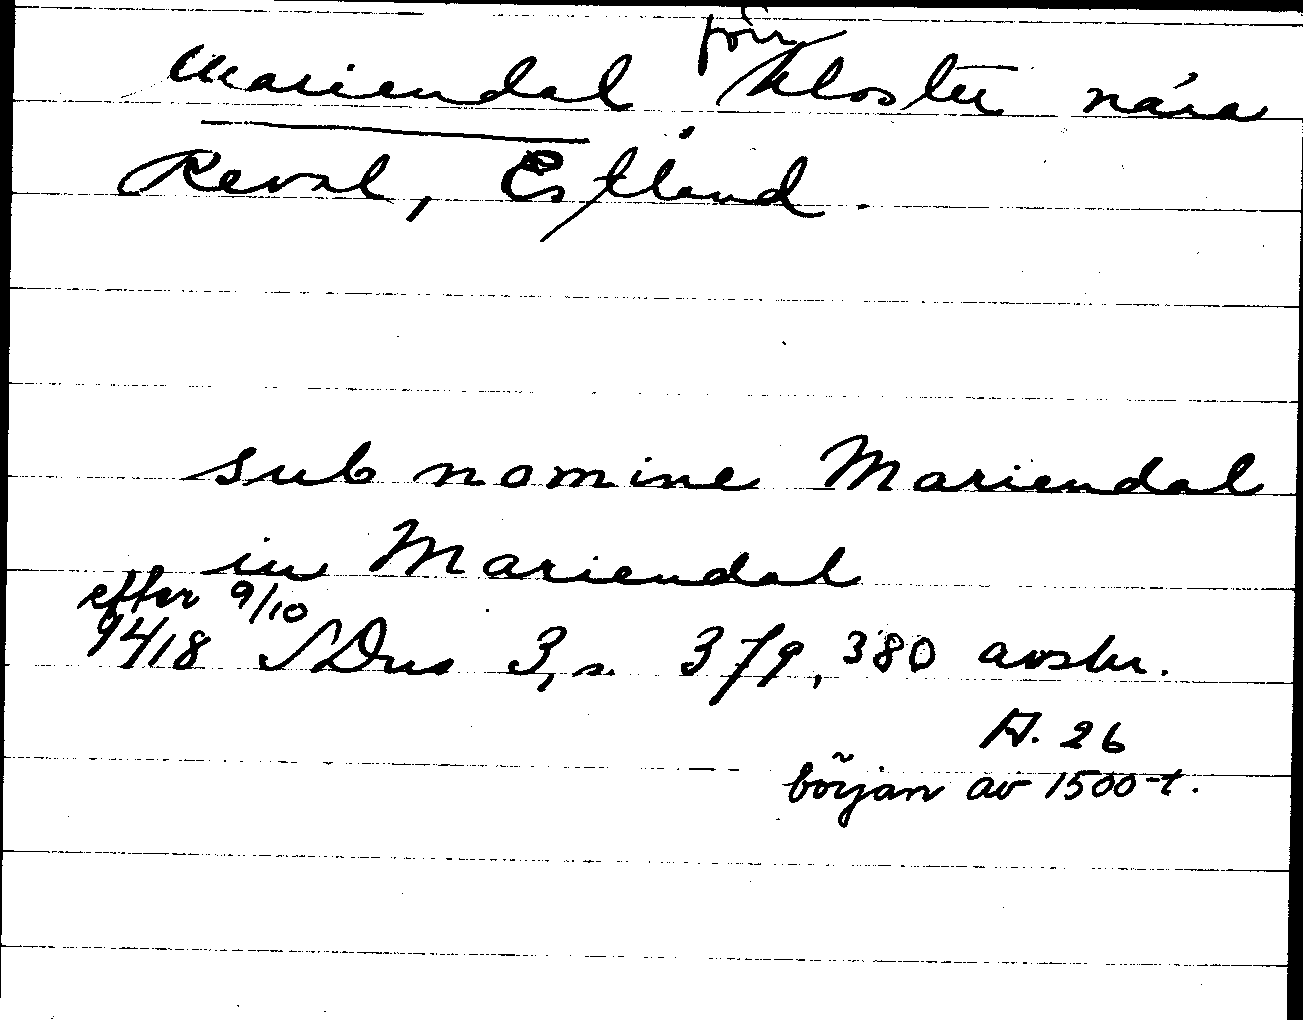 Mariendal förr kloster nära
Reval, Estland.
sub nomine Mariendal
in Mariendal
efter 9/10
1418 SDns 3, s. 379, 380 avskr.
A. 26
början av 1500-t.